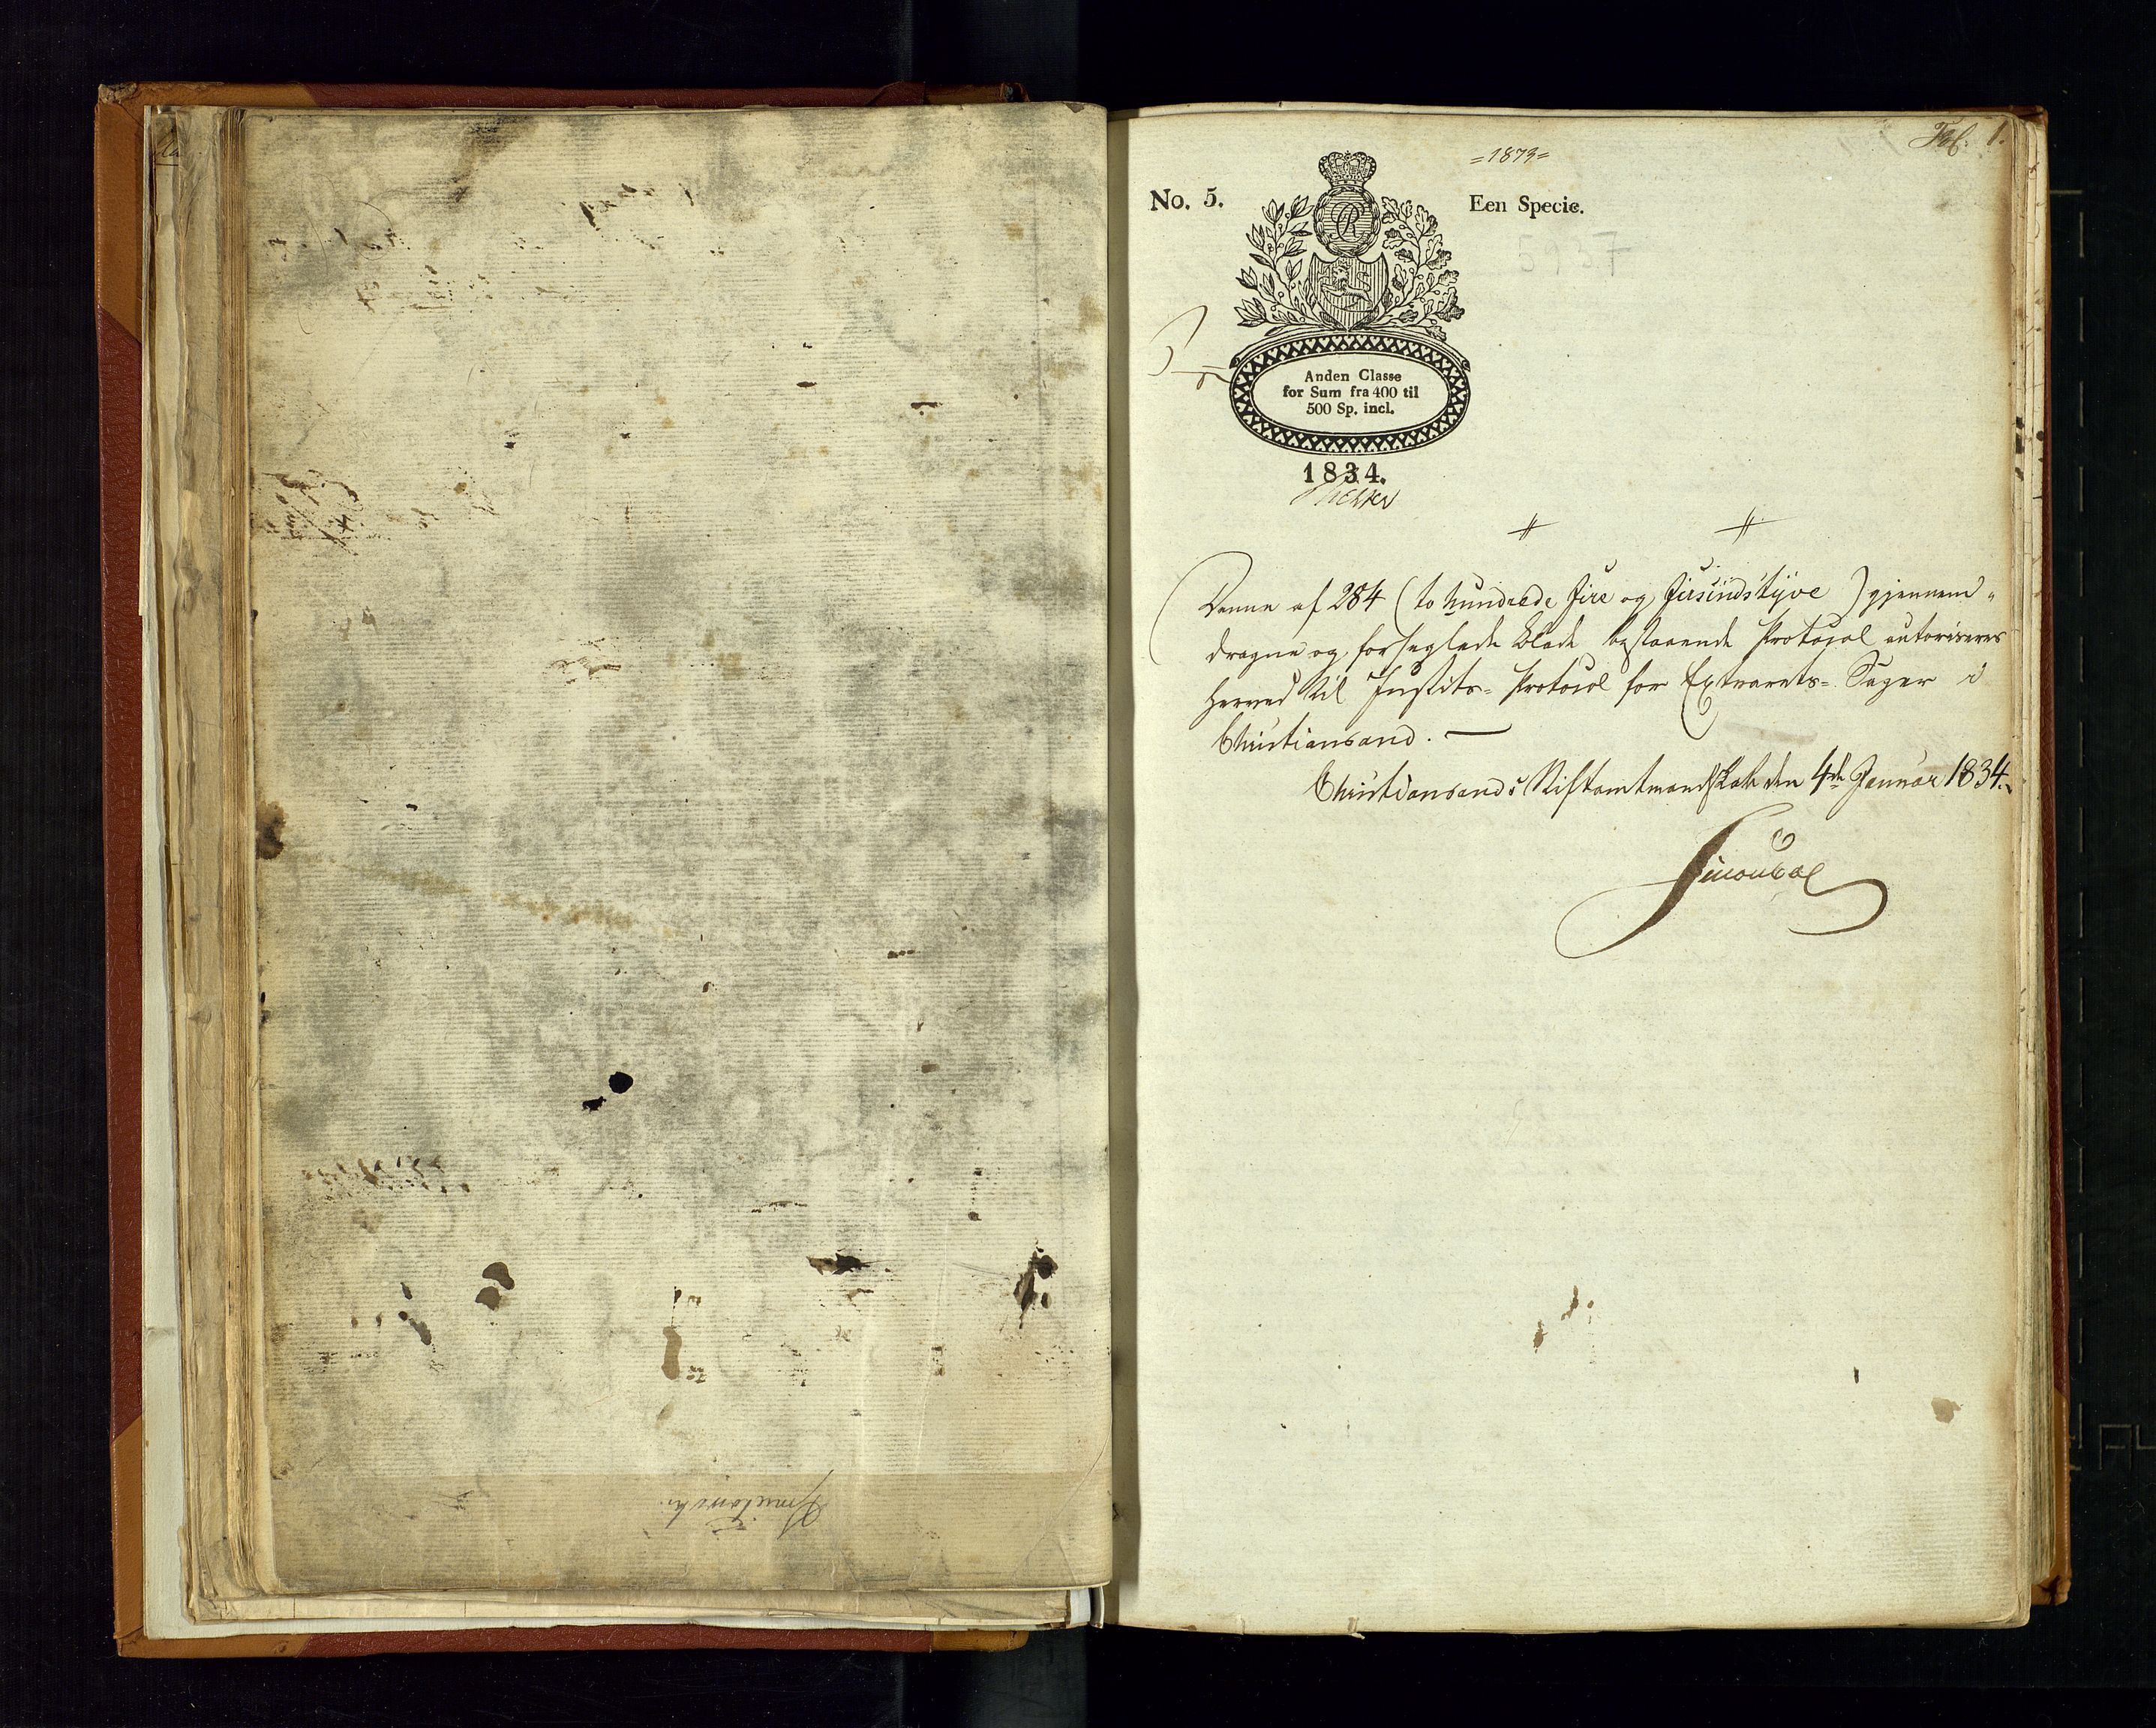 Fol. 1.
=1873=
No. 5.
Een Specie.
5937
Anden Classe
for Sum fra 400 til
500 Sp. incl.
1834.
Denne af 284 (to hundrede fire og firsindstyve) gjennem-
dragne og forseglede Blade bestaaende Protocol autoriseres
herved til Justits-Protocol for Extrarets-Sager i
Christiansand. —
Christiansands Stiftamtmandskab den 4de Januar 1834.